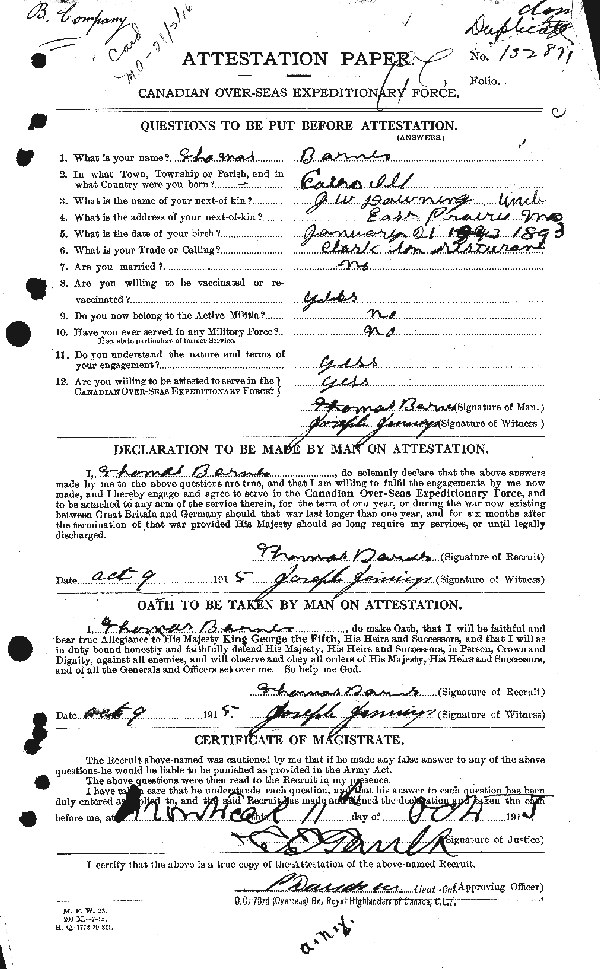 B. Company
Card
MD - 21/3/16
Duplicate
ATTESTATION PAPER.
No. 132871
Folio.
CANADIAN OVER-SEAS EXPEDITIONARY FORCE.
QUESTIONS TO BE PUT BEFORE ATTESTATION.
(ANSWERS)
1. What is your name? Thomas Barnes
2. In what Town, Township or Parish, and in
what Country were you born? Cairo Ill
3. What is the name of your next-of kin? J W Downing Uncle
4. What is the address of your next-of-kin? East Prairie Mo
5. What is the date of your birth? January 21 1893
6. What is your Trade or Calling? Clark in resturant
7. Are you married? no
8. Are you willing to be vaccinated or re-
vaccinated? yess
9. Do you now belong to the Active Militia? no
10. Have you ever served in any Military Force? no
If so, state particulars of former Service
11. Do you understand the nature and terms of
your engagement? yess
12. Are you willing to be attested to serve in the
CANADIAN OVER-SEAS EXPEDITIONARY FORCE? yess
Thomas Barnes (Signature of Man.)
Joseph Jennings (Signature of Witness)
DECLARATION TO BE MADE BY MAN ON ATTESTATION.
I, Thomas Barnes, do solemnly declare that the above answers
made by me to the above questions are true, and that I am willing to fulfil the engagements by me now
made, and I hereby engage and agree to serve in the Canadian Over-Seas Expeditionary Force, and
to be attached to any arm of the service therein, for the term of one year, or during the war now existing
between Great Britain and Germany should that war last longer than one year, and for six months after
the termination of that war provided His Majesty should so long require my services, or until legally
discharged.
Thomas Barnes (Signature of Recruit)
Date Oct 9 1915 Joseph Jennings (Signature of Witness)
OATH TO BE TAKEN BY MAN ON ATTESTATION.
I, Thomas Barnes, do make Oath, that I will be faithful and
bear true Allegiance to His Majesty King George the Fifth, His Heirs and Successors, and that I will as
in duty bound honestly and faithfully defend His Majesty, His Heirs and Successors, in Person, Crown and
Dignity, against all enemies, and will observe and obey all orders of His Majesty, His Heirs and Successors,
and of all the Generals and Officers set over me. So help me God.
Thomas Barnes (Signature of Recruit)
Date Oct 9 1915. Joseph Jennings (Signature of Witness)
CERTIFICATE OF MAGISTRATE.
The Recruit above-named was cautioned by me that if he made any false answer to any of the above
questions he would be liable to be punished as provided in the Army Act.
The above questions were then read to the Recruit in my presence.
I have taken care that he understands each question, and that his answer to each question has been
duly entered as replied to, and the said Recruit has made and signed the declaration and taken the oath
before me, at Montreal this 11 day of Oct 1915
(Signature of Justice)
I certify that the above is a true copy of the Attestation of the above-named Recruit.
Lieut-Col. (Approving Officer)
O.C. 73rd (Overseas) Bn. Royal Highlanders of Canada, C.E.F.
M. F. W. 23.
H. Q. 1772-39-821.